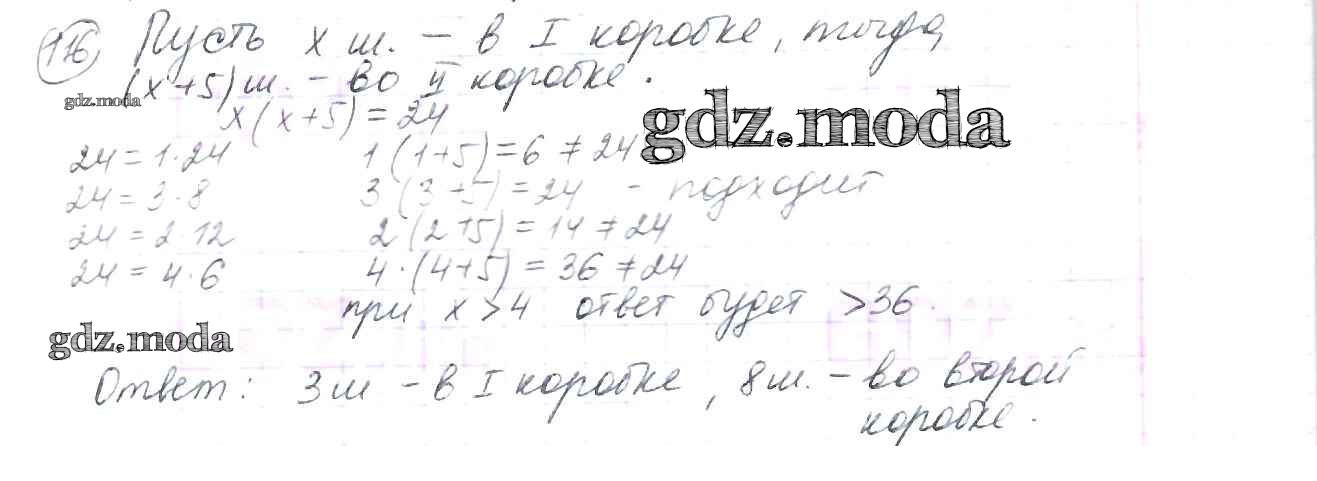 116 Пусть х ш. – в I коробке, тогда
(х+5) ш. – во II коробке.
gdz.moda
х(х+5)=24
gdz.moda
24=1·24 1(1+5)=6≠24
24=3·8 3(3+5)=24 – подходит
24=2·12 2(2+5)=14≠24
24=4·6 4·(4+5)=36≠24
при х>4 ответ будет >36.
gdz.moda
Ответ: 3ш – в I коробке, 8ш. – во второй
коробке.